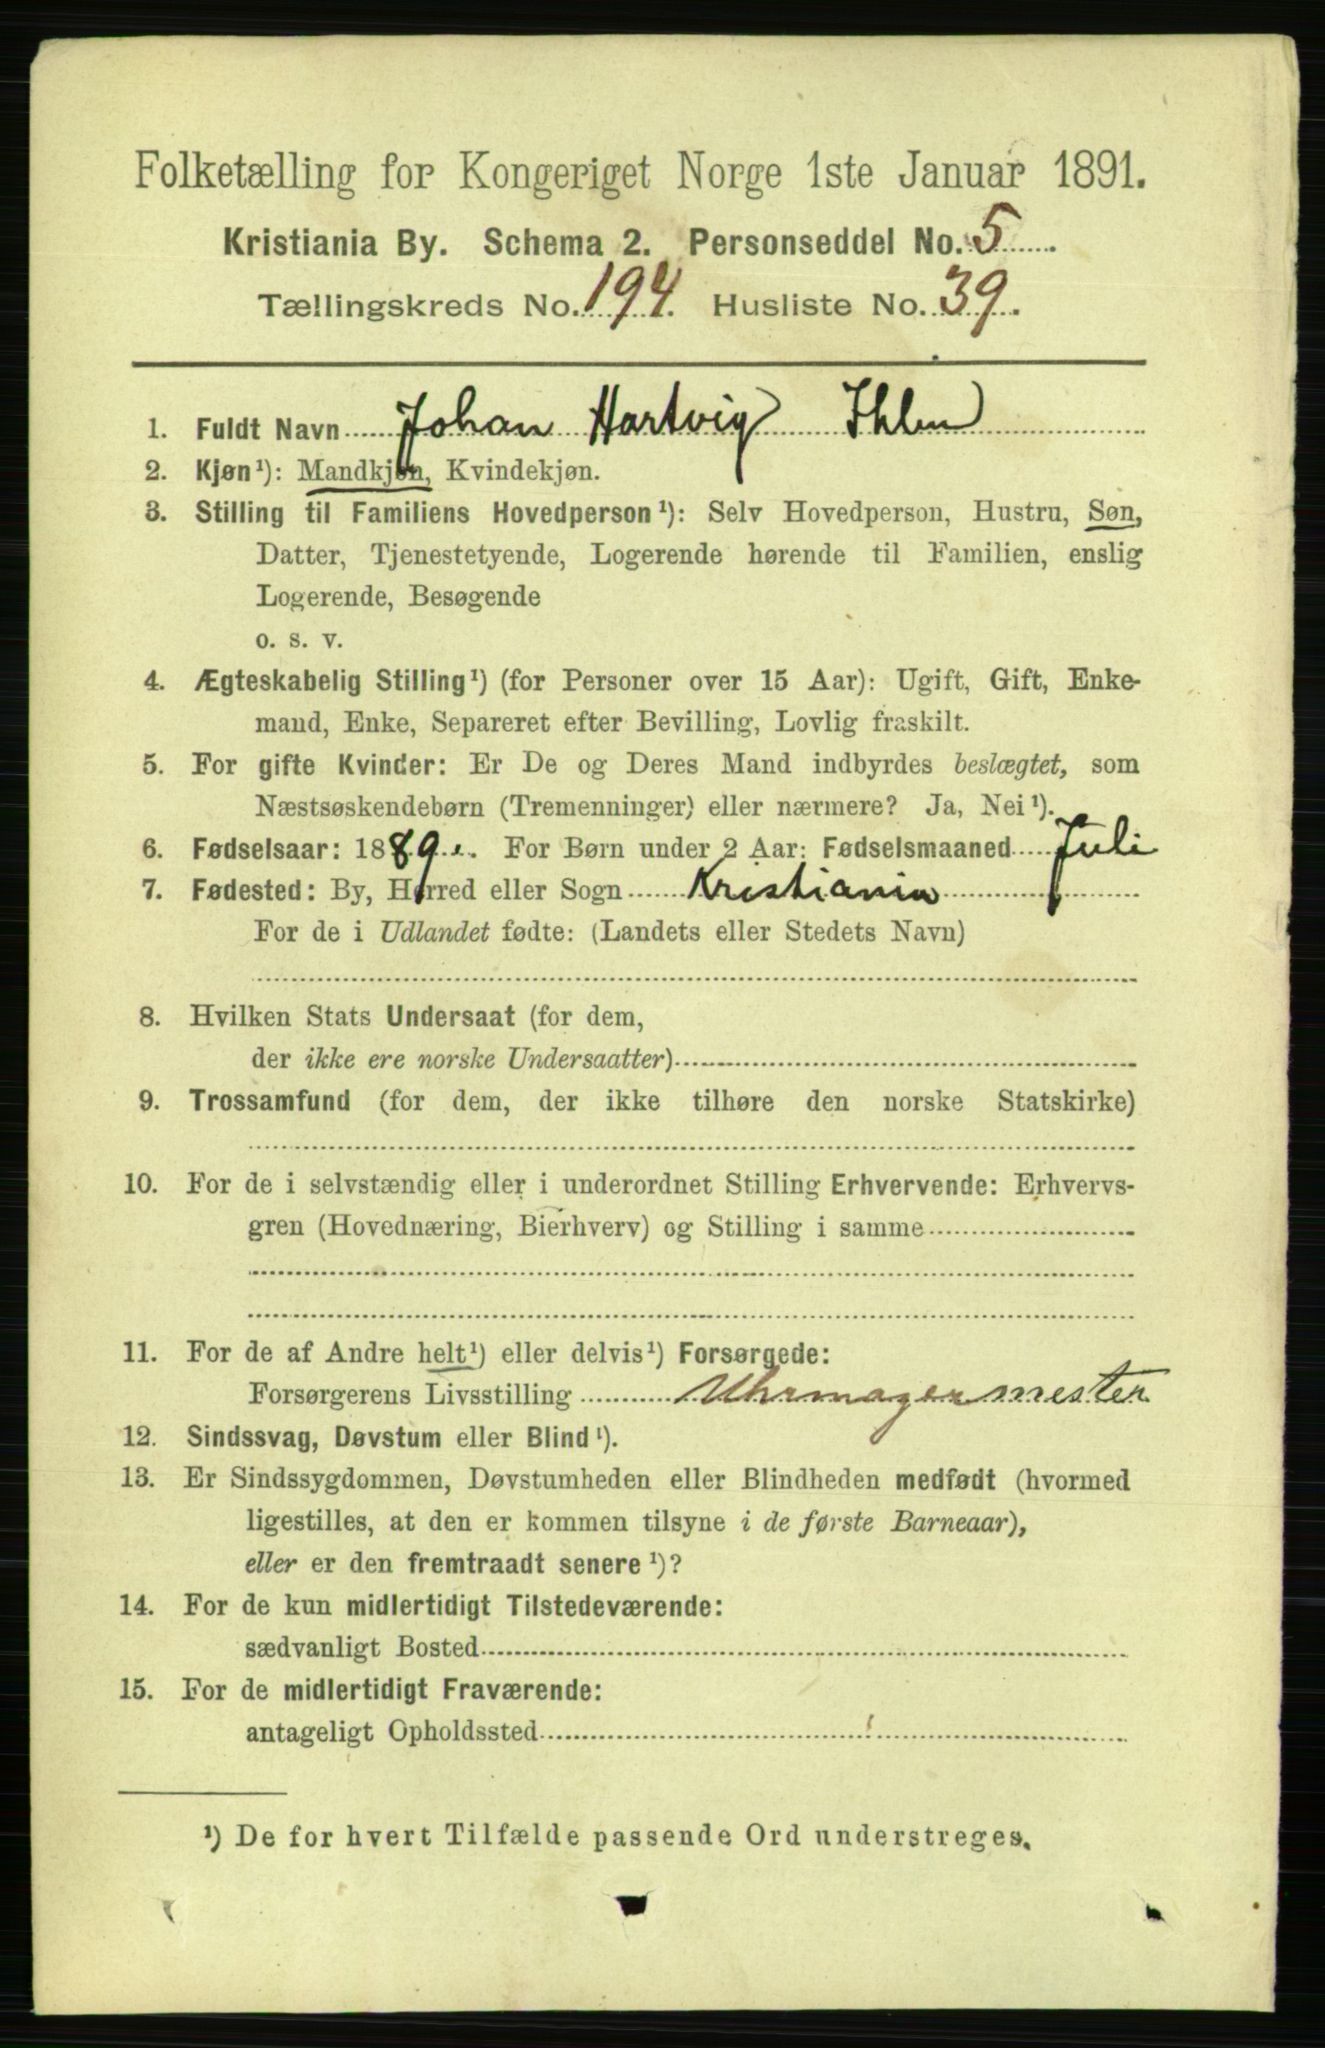 Folketælling for Kongeriget Norge 1ste Januar 1891.
Kristiania By. Schema 2. Personseddel No. 5
Tællingskreds No. 194. Husliste No. 39.
1. Fuldt Navn Johan Hartvig Ihlen
2. Kjøn¹): Mandkjøn, Kvindekjøn.
3. Stilling til Familiens Hovedperson¹): Selv Hovedperson, Hustru, Søn,
Datter, Tjenestetyende, Logerende hørende til Familien, enslig
Logerende, Besøgende
o. s. v.
4. Ægteskabelig Stilling¹) (for Personer over 15 Aar): Ugift, Gift, Enke-
mand, Enke, Separeret efter Bevilling, Lovlig fraskilt.
5. For gifte Kvinder: Er De og Deres Mand indbyrdes beslægtet, som
Næstsøskendebørn (Tremenninger) eller nærmere? Ja, Nei¹).
6. Fødselsaar: 1889. For Børn under 2 Aar: Fødselsmaaned Juli
7. Fødested: By, Herred eller Sogn Kristiania
For de i Udlandet fødte: (Landets eller Stedets Navn)
8. Hvilken Stats Undersaat (for dem,
der ikke ere norske Undersaatter)
9. Trossamfund (for dem, der ikke tilhøre den norske Statskirke)
10. For de i selvstændig eller i underordnet Stilling Erhvervende: Erhvervs-
gren (Hovednæring, Bierhverv) og Stilling i samme
11. For de af Andre helt¹) eller delvis¹) Forsørgede:
Forsørgerens Livsstilling Uhrmagermester
12. Sindssvag, Døvstum eller Blind¹).
13. Er Sindssygdommen, Døvstumheden eller Blindheden medfødt (hvormed
ligestilles, at den er kommen tilsyne i de første Barneaar),
eller er den fremtraadt senere¹)?
14. For de kun midlertidigt Tilstedeværende:
sædvanligt Bosted
15. For de midlertidigt Fraværende:
antageligt Opholdssted
¹) De for hvert Tilfælde passende Ord understreges.